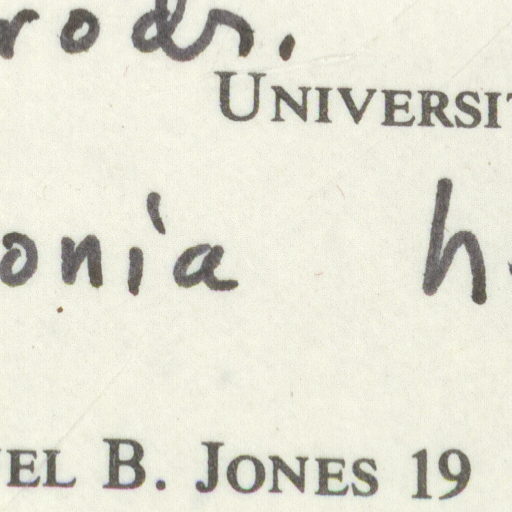 rodr.
UNIVERSIT
onia h
EL B. JONES 19